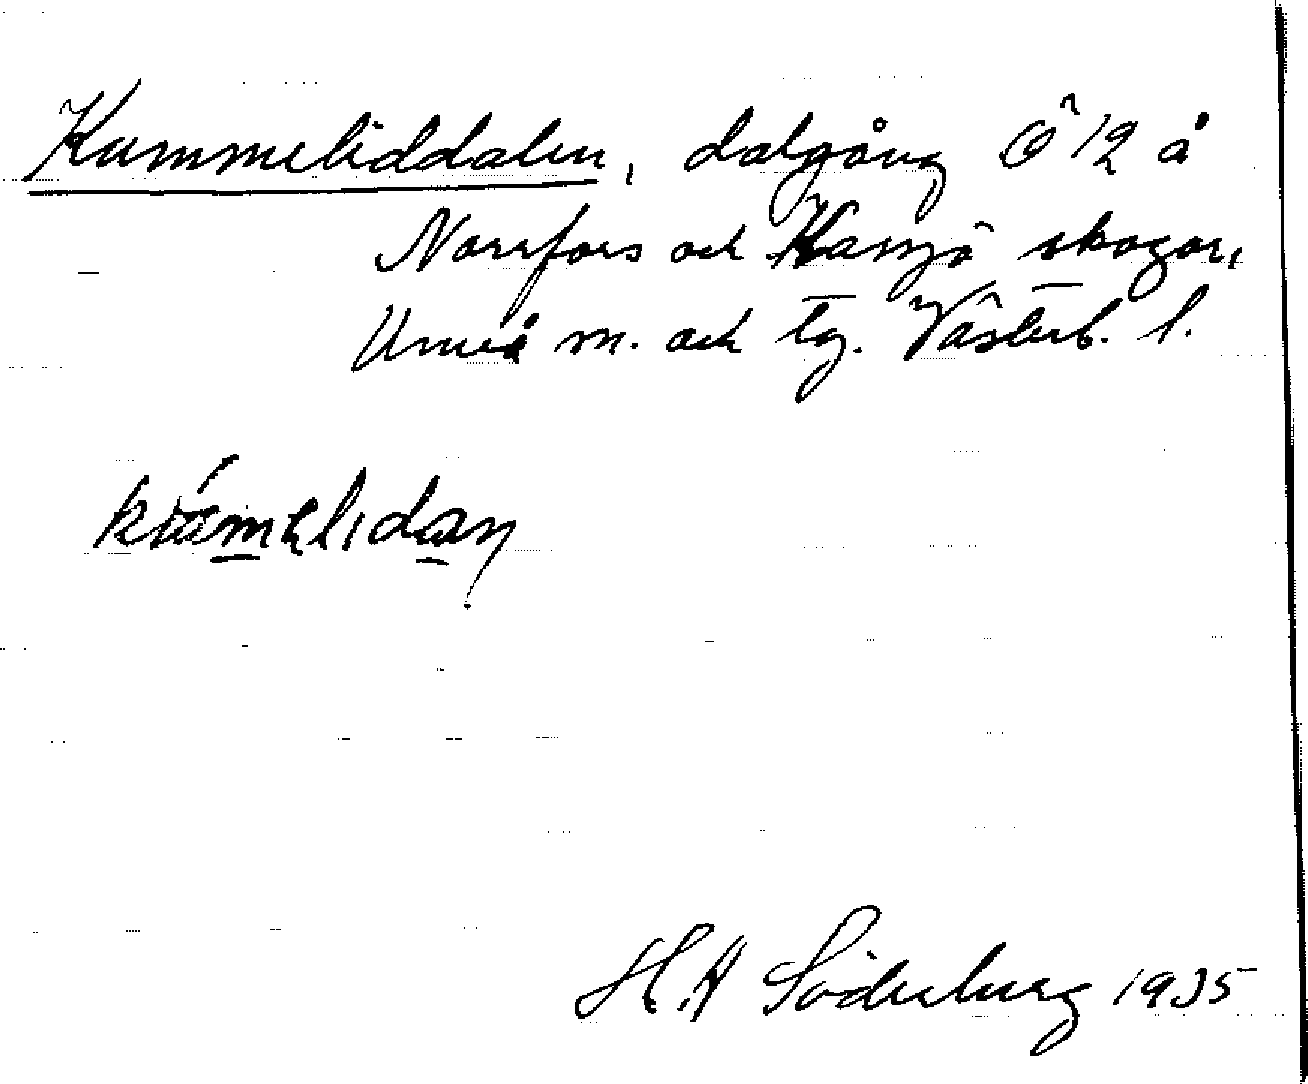 Kammeliddalen, dalgång Ö 12 å
Norrfors och Kassjö skogar,
Umeå m. och tg. Västerb. l.
H A Söderberg 1935